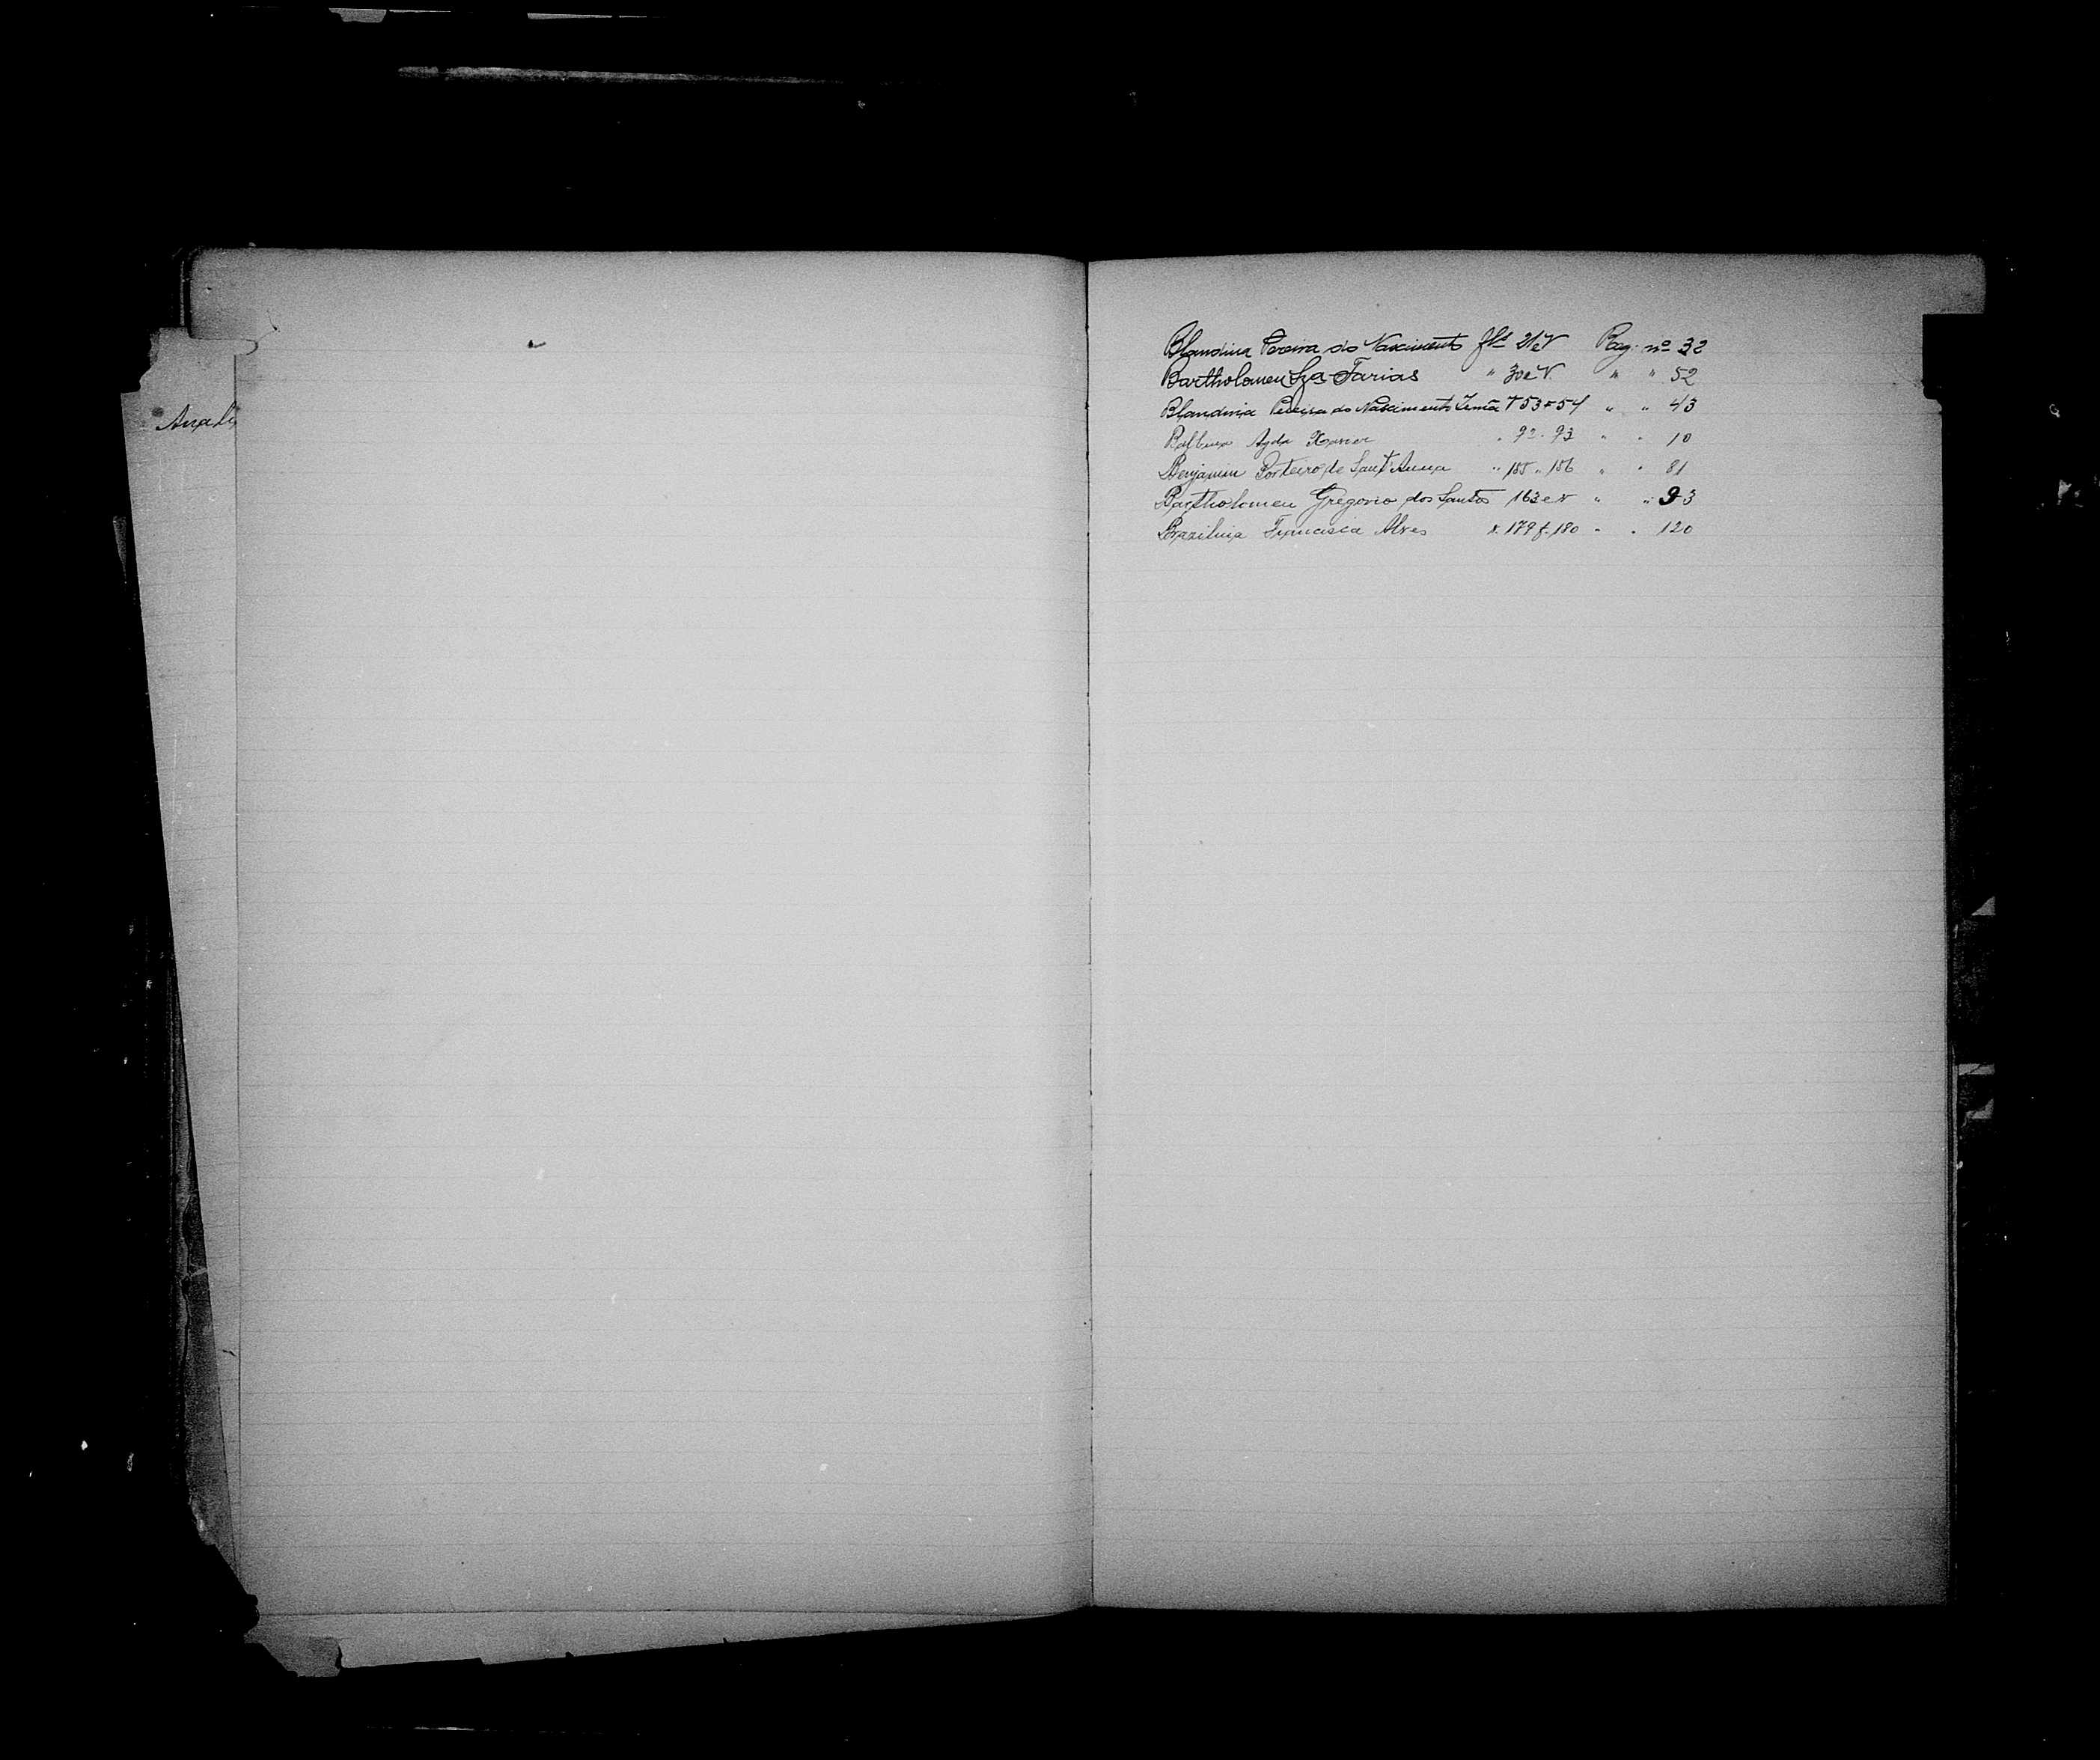 Anali
Blandina Pereira do Nascimento fls 21 e V Reg. nº 32
Bartholomeu Sza Farias " 30 e V. " " 52
Blandina Pereira do Nascimento 53 54 " " 43
Balbina Ayda Xavier " 92 - 93 " " 10
Benjamin Porteiro de Sant'Anna " 155 " 156 " " 81
Bartholomeu Gregorio dos Santos 163 e V " " 93
Brazilina Francisca Alves 179 f. 180 " " 120